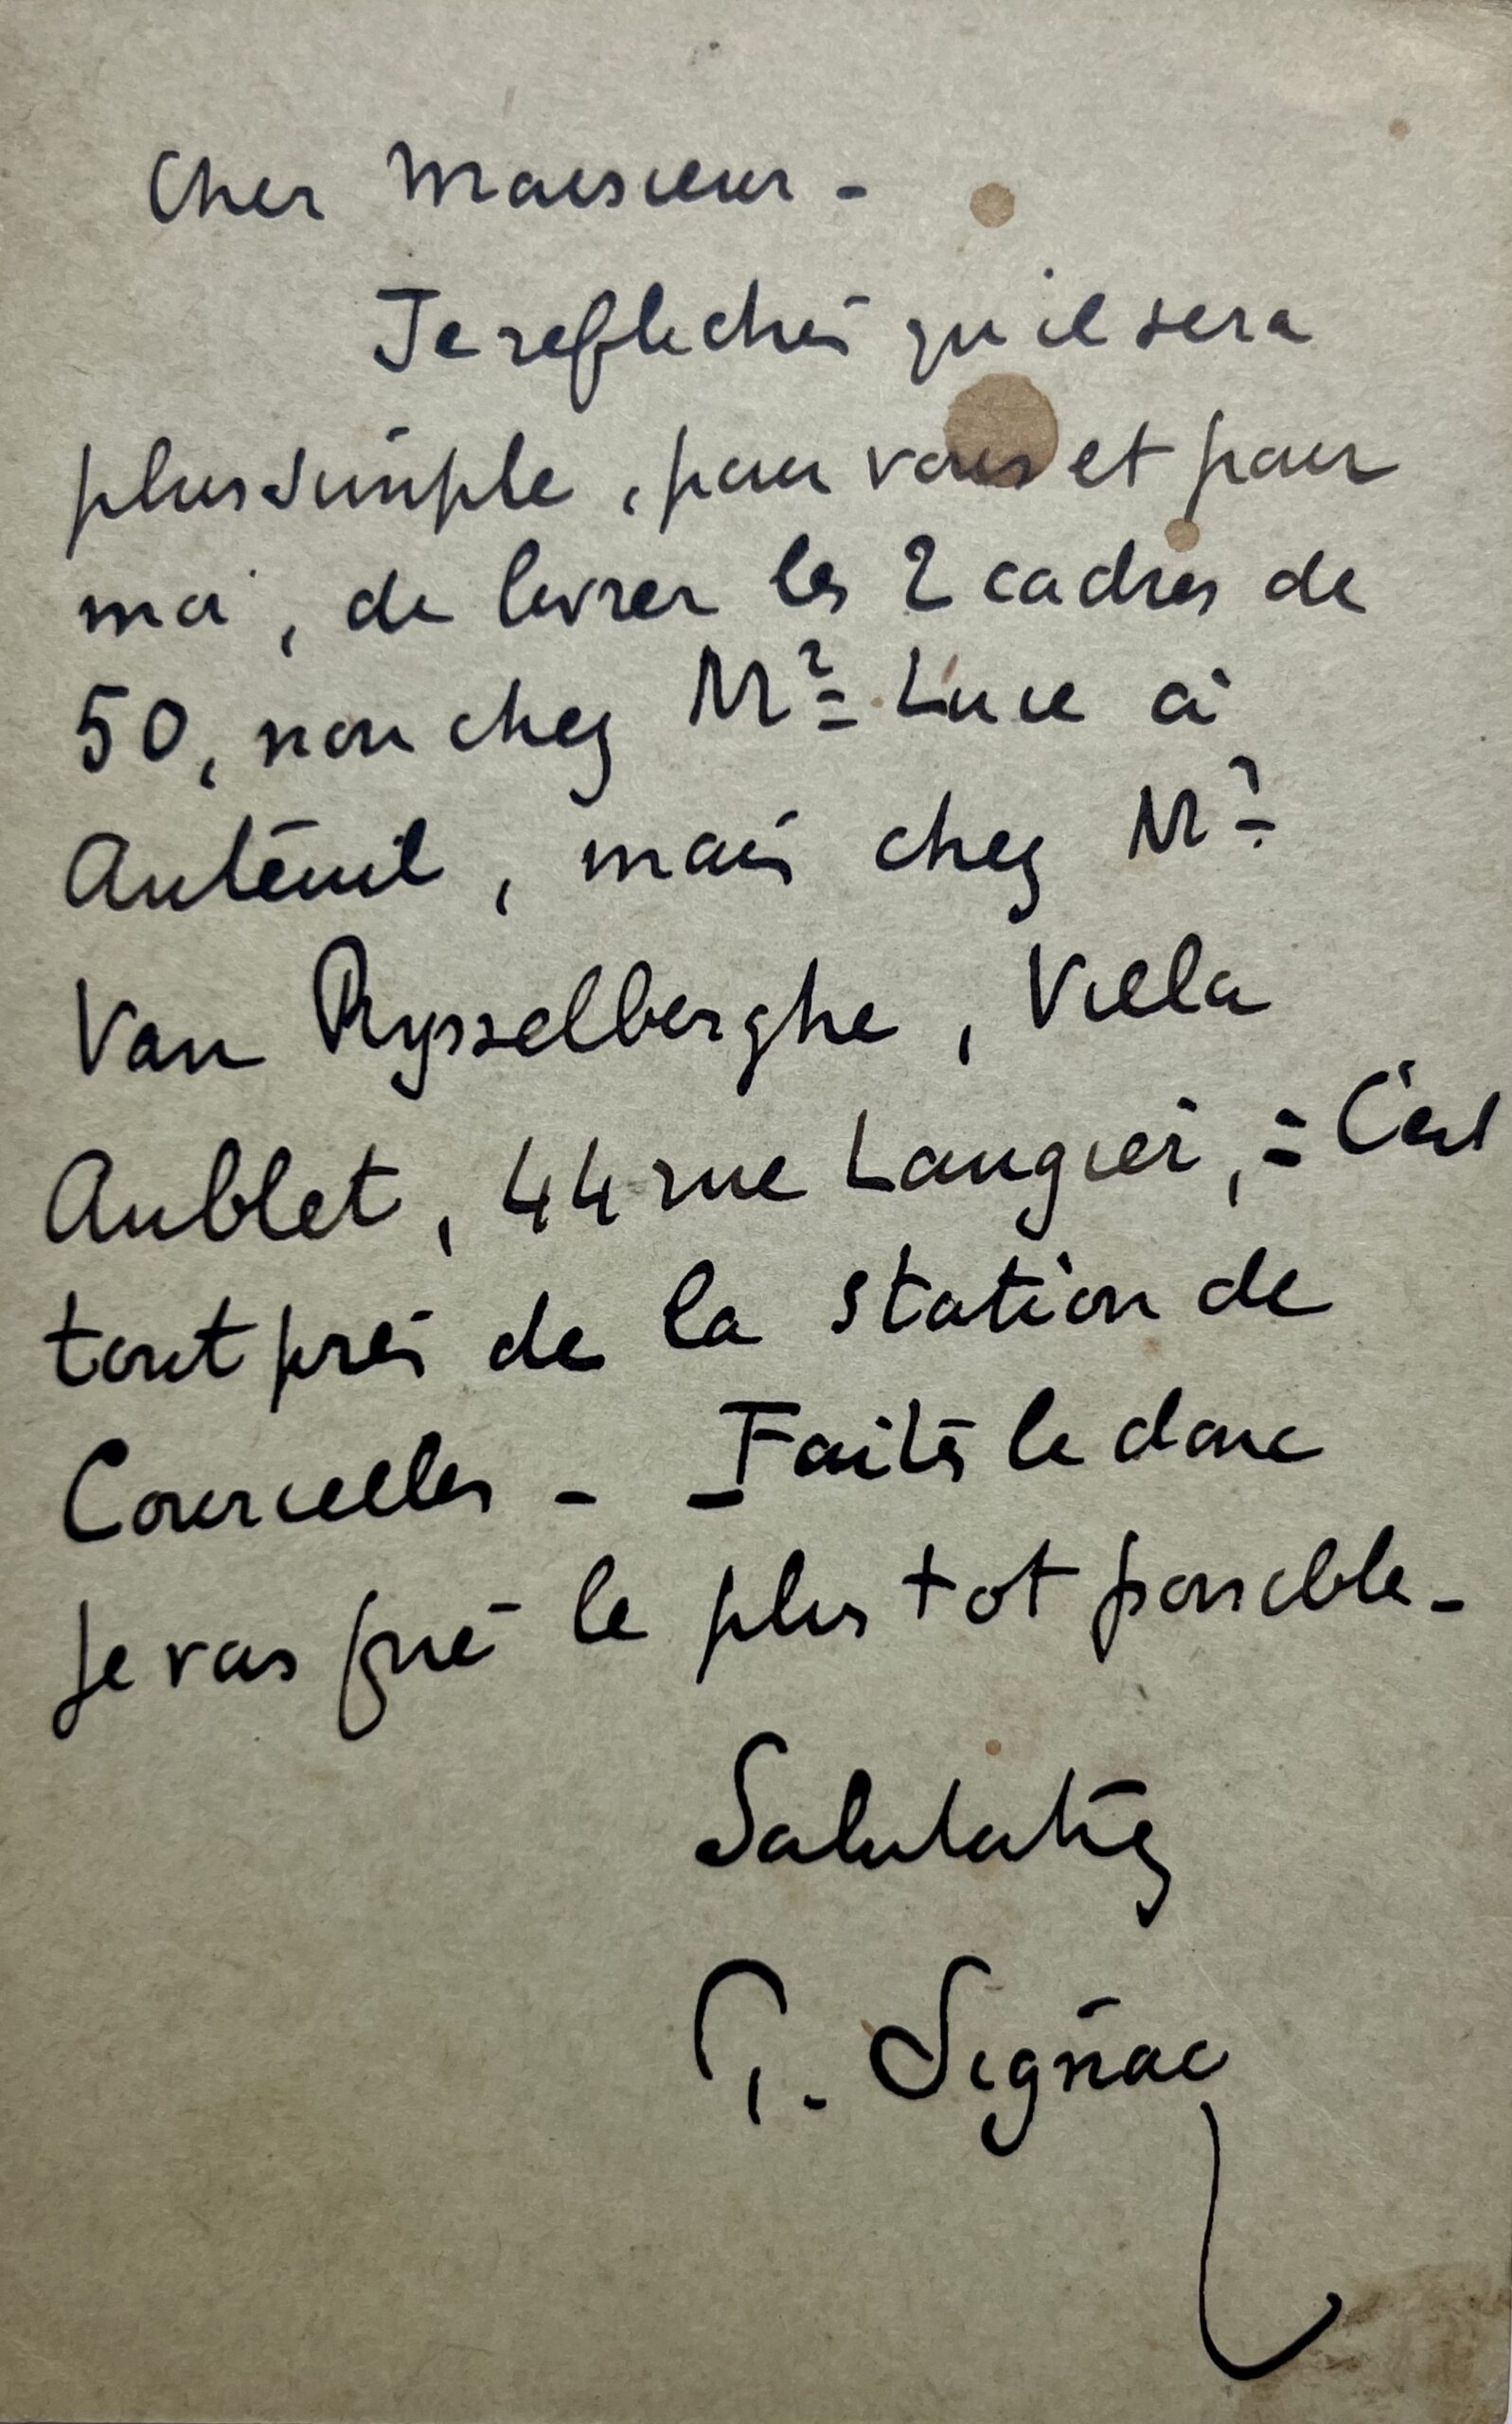 Cher Monsieur -
Je reflechis qu'il sera
plus simple, pour vous et pour
moi, de livrer les 2 cadres de
50, non chez Mr Luce à
Auteuil, mais chez Mr
Van Rysselberghe, Villa
Aublet, 44 rue Laugier, = C'est
tout près de la station de
Courcelles - - Faites le donc
je vous prie le plus tot possible -
Salutations
P. Signac